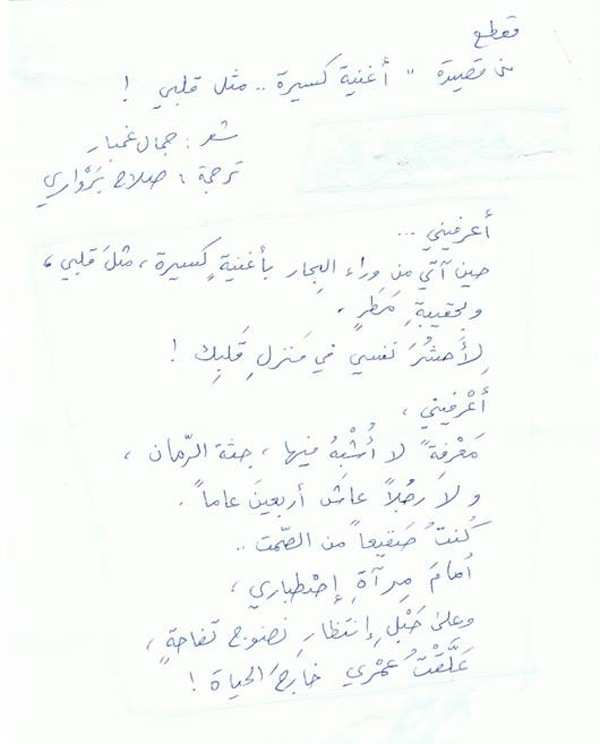 مقطع
من قصيدة " أغنية كسيرة .. مثل قلبي !
شعر : جمال غمبار
ترجمة : صلاح بَرْواري
أعرفيني ...
حين آتي مِن وراء البِحار بأغنيةٍ كسيرة ، مثلَ قلبي ،
وبحقيبةِ مَطَرٍ ،
لِأَحشُرَ نفسي في مَنزلِ قَلبِكِ !
أعْرفيني ،
مَعْرِفةً لا أُشْبِهُ فيها ، جثة الرّمان ،
ولا رَجُلاً عاشَ أربعينَ عاماً .
كُنتُ صَقيعاً من الصّمت ..
أمامَ مِرآةِ إصْطِباري ،
وعلى حَبْلِ إنتظارِ نضوج تفاحةٍ ،
عَلَّقْتُ عُمْري خارجَ الحياة !